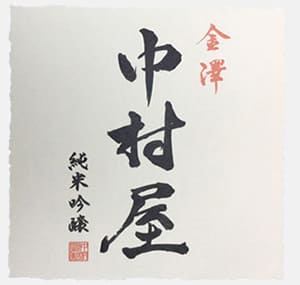 金澤
中村屋
純米吟醸